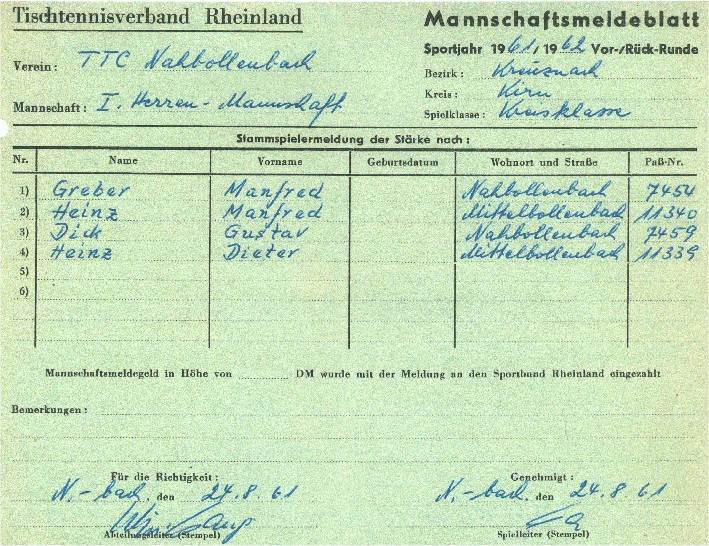 Tischtennisverband Rheinland
Mannschaftsmeldeblatt
Sportjahr 1961/1962 Vor-/Rück-Runde
Verein: TTC Nahbollenbach
Bezirk: Kreuznach
Kreis: Kirn
Mannschaft: I. Herren-Mannschaft
Spielklasse: Kreisklasse
Stammspielermeldung der Stärke nach:
Nr. Name Vorname Geburtsdatum Wohnort und Straße Paß-Nr.
1) Greber Manfred Nahbollenbach 7454
2) Heinz Manfred Mittelbollenbach 11340
3) Dick Gustav Nahbollenbach 7459
4) Heinz Dieter Mittelbollenbach 11339
5)
6)
Mannschaftsmeldegeld in Höhe von DM wurde mit der Meldung an den Sportbund Rheinland eingezahlt
Bemerkungen:
Für die Richtigkeit: Genehmigt:
N.-bach, den 24.8.61 N.-bach, den 24.8.61
Abteilungsleiter (Stempel) Spielleiter (Stempel)